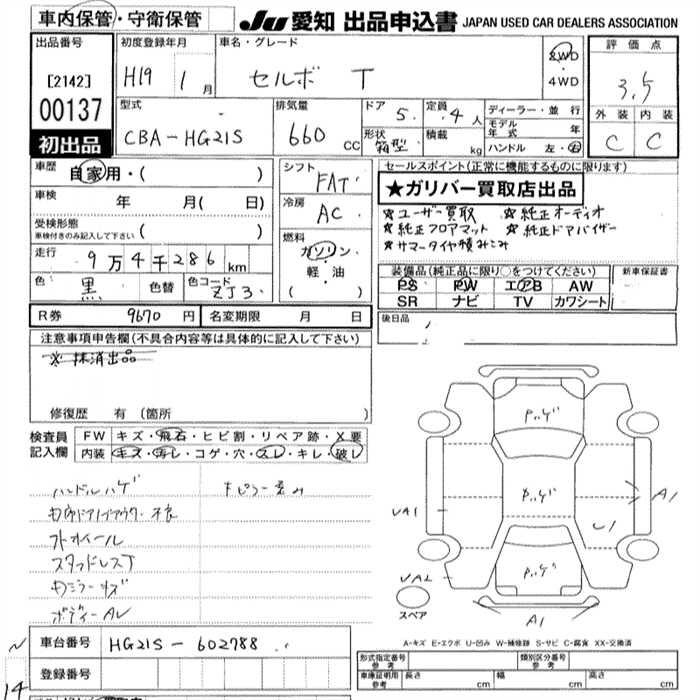 車内保管・守衛保管
JU 愛知 出品申込書 JAPAN USED CAR DEALERS ASSOCIATION
出品番号
[2142]
00137
初出品
初度登録年月
H19 1月
車名・グレード
セルボ T
2WD
・
4WD
評価点
3.5
外装 内装
C C
型式
CBA-HG21S
排気量
660 CC
ドア 5
形状 箱型
定員 4人
積載 kg
ディーラー・並行
モデル年式 年
ハンドル 左・右
車歴
自家用・( )
車検 年 月( 日)
受検形態
車検付きのみ記入して下さい ( )
走行
9万4千286 km
色 黒 色替 色コード ZJ3
シフト
FAT
冷房
AC
燃料
ガソリン
軽・油
( )
セールスポイント(正常に機能するものに限ります)
★ガリバー買取店出品
★ユーザー買取 ★純正オーディオ
★純正フロアマット ★純正ドアバイザー
★サマータイヤ積みこみ
装備品(純正品に限り○をつけてください)
PS PW エアB AW
SR ナビ TV カワシート
新車保証書
R券 9670円 名変期限 月 日
後日品
注意事項申告欄(不具合内容等は具体的に記入して下さい)
※抹消出品
修復歴 有(箇所
検査員記入欄
FW キズ・飛石・ヒビ割・リペア跡・X要
内装 キズ・汚レ・コゲ・穴・スレ・キレ・破レ
ハンドルハゲ
ホイール
スタッドレスT
P.ハゲ
P.ハゲ
P.ハゲ
VA1
A1
U1
VA2
A1
スペア
A-キズ E-エクボ U-凹み W-補修跡 S-サビ C-腐食 XX-交換済
車台番号 HG21S-602788
登録番号
14
形式指定番号 参考
類別区分番号 参考
車庫証明用 参考 長さ cm 幅 cm 高さ cm